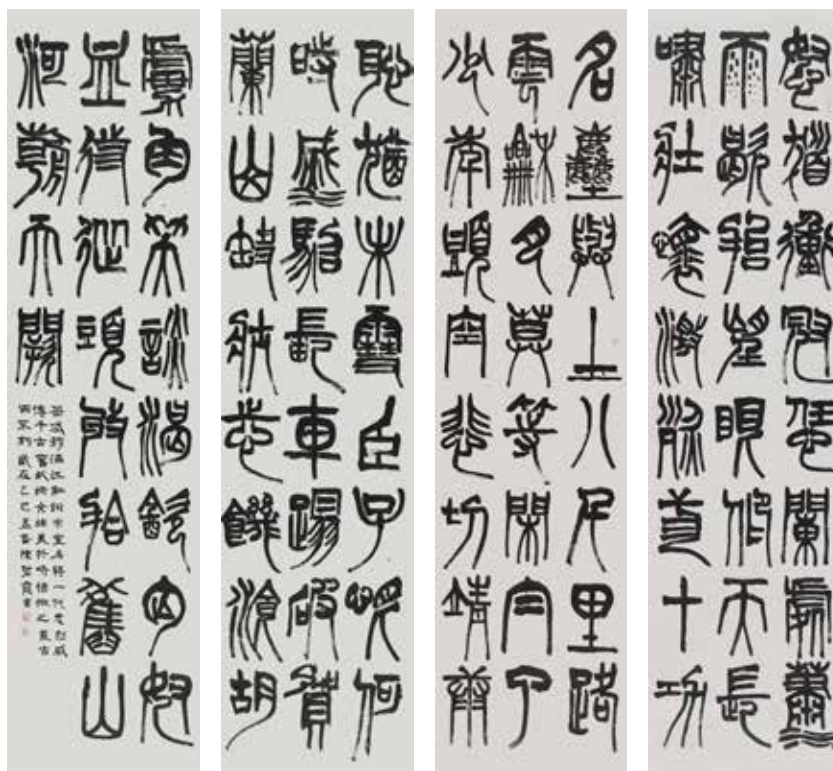 怒髮衝冠憑闌處瀟
雨歇抬望眼仰天長
嘯壯懷激烈三十功
名塵與土八千里路
雲和月莫等閒白了
少年頭空悲切靖康
恥猶未雪臣子恨何
時滅駕長車踏破賀
蘭山缺壯志饑飡胡
虜肉笑談渴飲匈奴
血待從頭收拾舊山
河朝天闕
歲在乙巳孟春